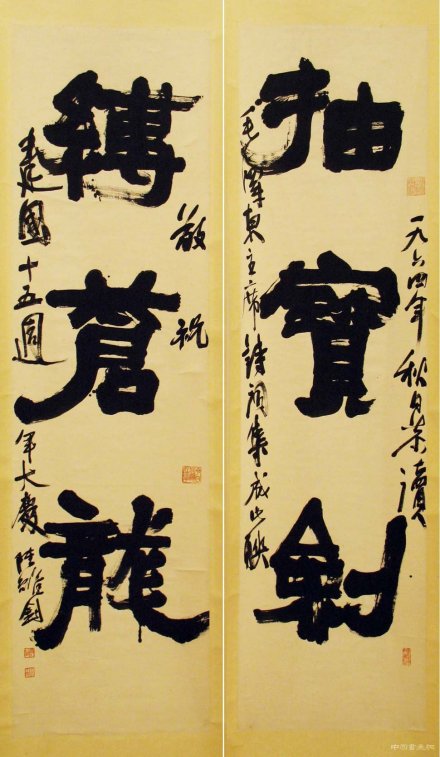 抽寶劍
一九六四年秋日恭讀
毛澤東主席詩詞集成此聯
縛蒼龍
敬祝
建國十五週年大慶陸維釗